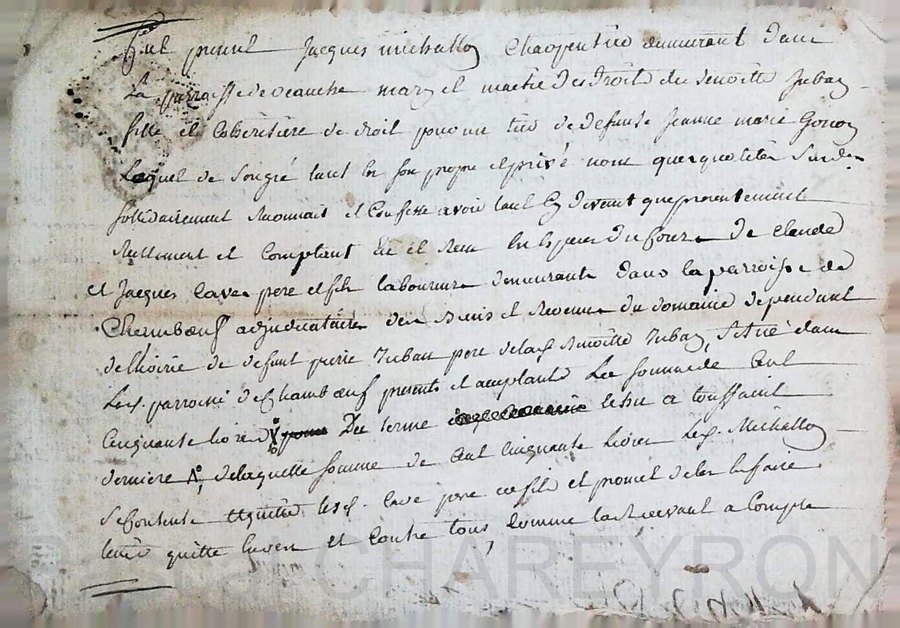 fut present Jacques michallon Charpentier demeurant dans
La parroisse de veauche mary et maitre des droits de benoitte Juban
fille et Coheritière de droit pour un tiers de defunte Jeanne marie Goion
Lequel de son gré tant en son propre et privé nom que qualités susdes
sollidairement reconnait et Confesse avoir tant cy devant que presentement
reellement et Comptant eu et receu en Especes du Cours de Claude
et Jacques Cave pere et fils laboureurs demeurants dans la parroisse de
Chambœuf adjudicataires des et revenus du domaine dependant
de l'hoirie de defunt pierre Juban pere de la de benoitte Juban, Scitué dans
La parroisse de Chambœuf presents et acceptants La somme de Cent
Cinquante livres pour Du terme echu a toussaint
derniere de laquelle somme de Cent Cinquante livres Led. Michallon
Se Contente les Cave pere et fils et promet de les en faire
tenir quitte Envers Et Contre tous, Comme la recevant a Compte
CHAREYRON